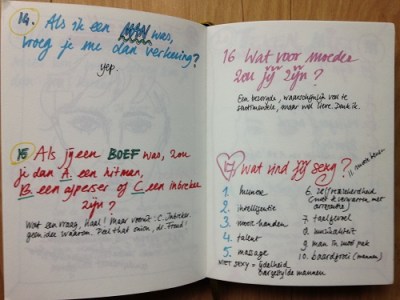 14. Als ik een man was,
vroeg je me dan verkering?
yep.
15 Als jij een BOEF was, zou
je dan A. een hitman,
B een afperser of C een inbreker
zijn?
Wat een vraag, Kaal! Maar vooruit: C. Inbreker.
geen idee waarom. Deel that onion, dr. Freud!
16 Wat voor moeder
zou jij zijn?
Een bezorgde, waarschijnlijk veel te
sentimentele, maar wel lieve. Denk ik.
17 wat vind jij sexy?
1. humor
2. intelligentie
3. mooie handen
4. talent
5. massage
NIET SEXY = Geilheid
6. zelfverzekerdheid
(niet te verwarren met
arrogantie)
7. taalgevoel
8. muzikaliteit
9. man in mooi pak
10. baardgroei (mannen)
11. mooie benen